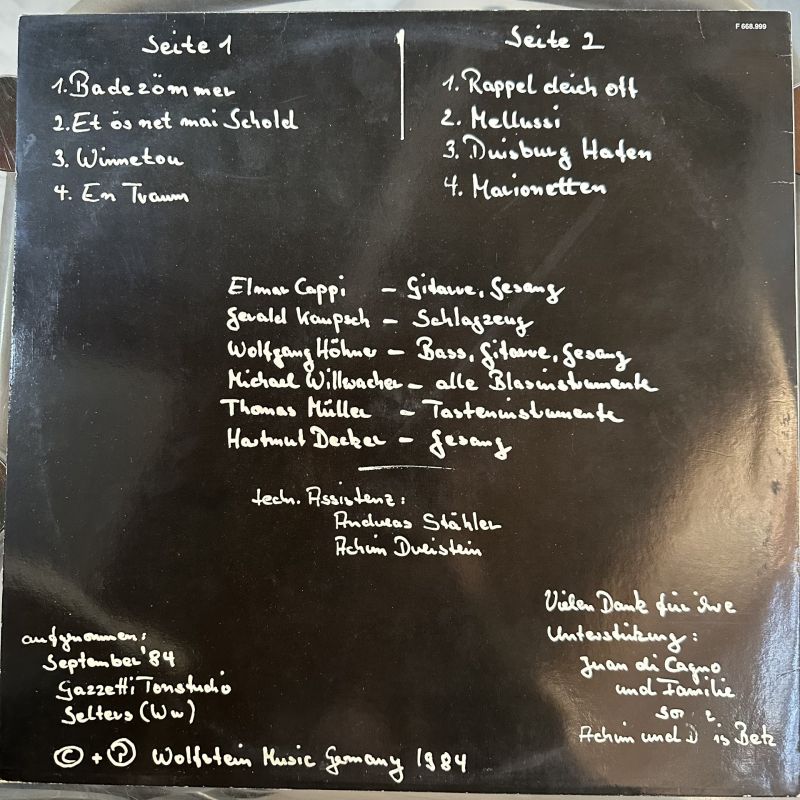 F 668.999
Seite 1
1. Badezömmer
2. Et ös net mai Schold
3. Winnetou
4. En Traum
Seite 2
1. Rappel deich off
2. Mellussi
3. Duisburg Hafen
4. Marionetten
Elmar Cappi - Gitarre, Gesang
Gerald Kaupsch - Schlagzeug
Wolfgang Höhner - Bass, Gitarre, Gesang
Michael Willwacher - alle Blasinstrumente
Thomas Müller - Tasteninstrumente
Hartmut Decker - Gesang
techn. Assistenz:
Andreas Stähler
Achim Dreistein
aufgenommen:
September '84
Gazzetti Tonstudio
Selters (Ww)
© + ℗ Wolfstein Music Germany 1984
Vielen Dank für ihre
Unterstützung:
Juan di Cagno
und Familie
Achim und Betz